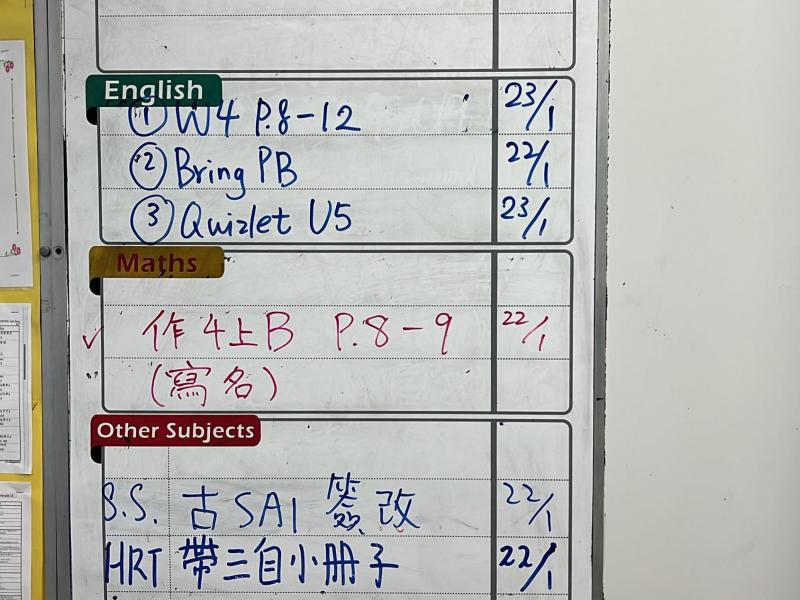 English
① W4 P.8-12 23/1
② Bring PB 22/1
③ Quizlet U5 23/1
Maths
✓ 作 4上B P.8-9 22/1
(寫名)
Other Subjects
S.S. 古 SA1 簽改 22/1
HRT 帶三自小册子 22/1